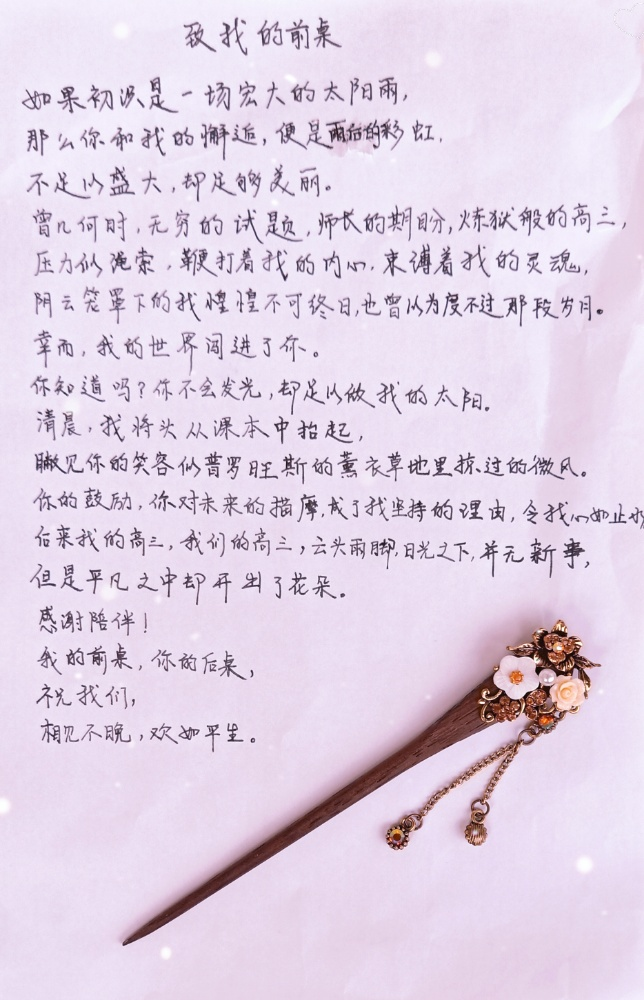 致我的前桌
如果初识是一场宏大的太阳雨，
那么你和我的邂逅，便是雨后的彩虹，
不足以盛大，却足够美丽。
曾几何时，无穷的试题，师长的期盼，炼狱般的高三，
压力似绳索，鞭打着我的内心，束缚着我的灵魂，
阴云笼罩下的我惶惶不可终日，也曾以为度不过那段岁月。
幸而，我的世界闯进了你。
你知道吗？你不会发光，却足以做我的太阳。
清晨，我将头从课本中抬起，
瞅见你的笑容似普罗旺斯的薰衣草地里掠过的微风。
你的鼓励，你对未来的描摩，成了我坚持的理由，令我心如止水
后来我的高三，我们的高三，云头雨脚，日光之下，并无新事，
但是平凡之中却开出了花朵。
感谢陪伴！
我的前桌，你的后桌，
祝我们，
相见不晚，欢如平生。